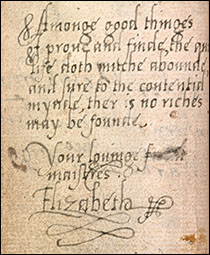 Amonge good thinges
I prove and finde, the qu
life doth mutche abounde
and sure to the contentid
mynde, ther is no riches
may be founde.
Your lovinge
maistres
Elizabeth